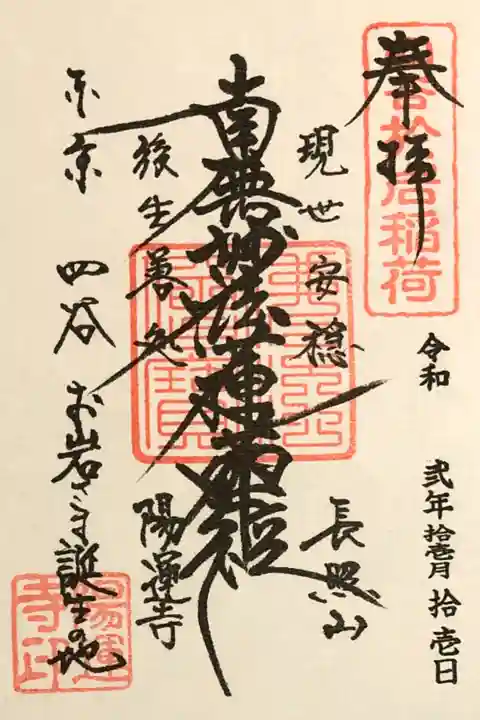 奉拝
稲荷
令和 弐年 拾壱月 拾壱日
現世安穏 長照山
南無妙法蓮華経
後生善処 陽運寺
東京 四谷 お岩さま誕生の地
陽運
寺印